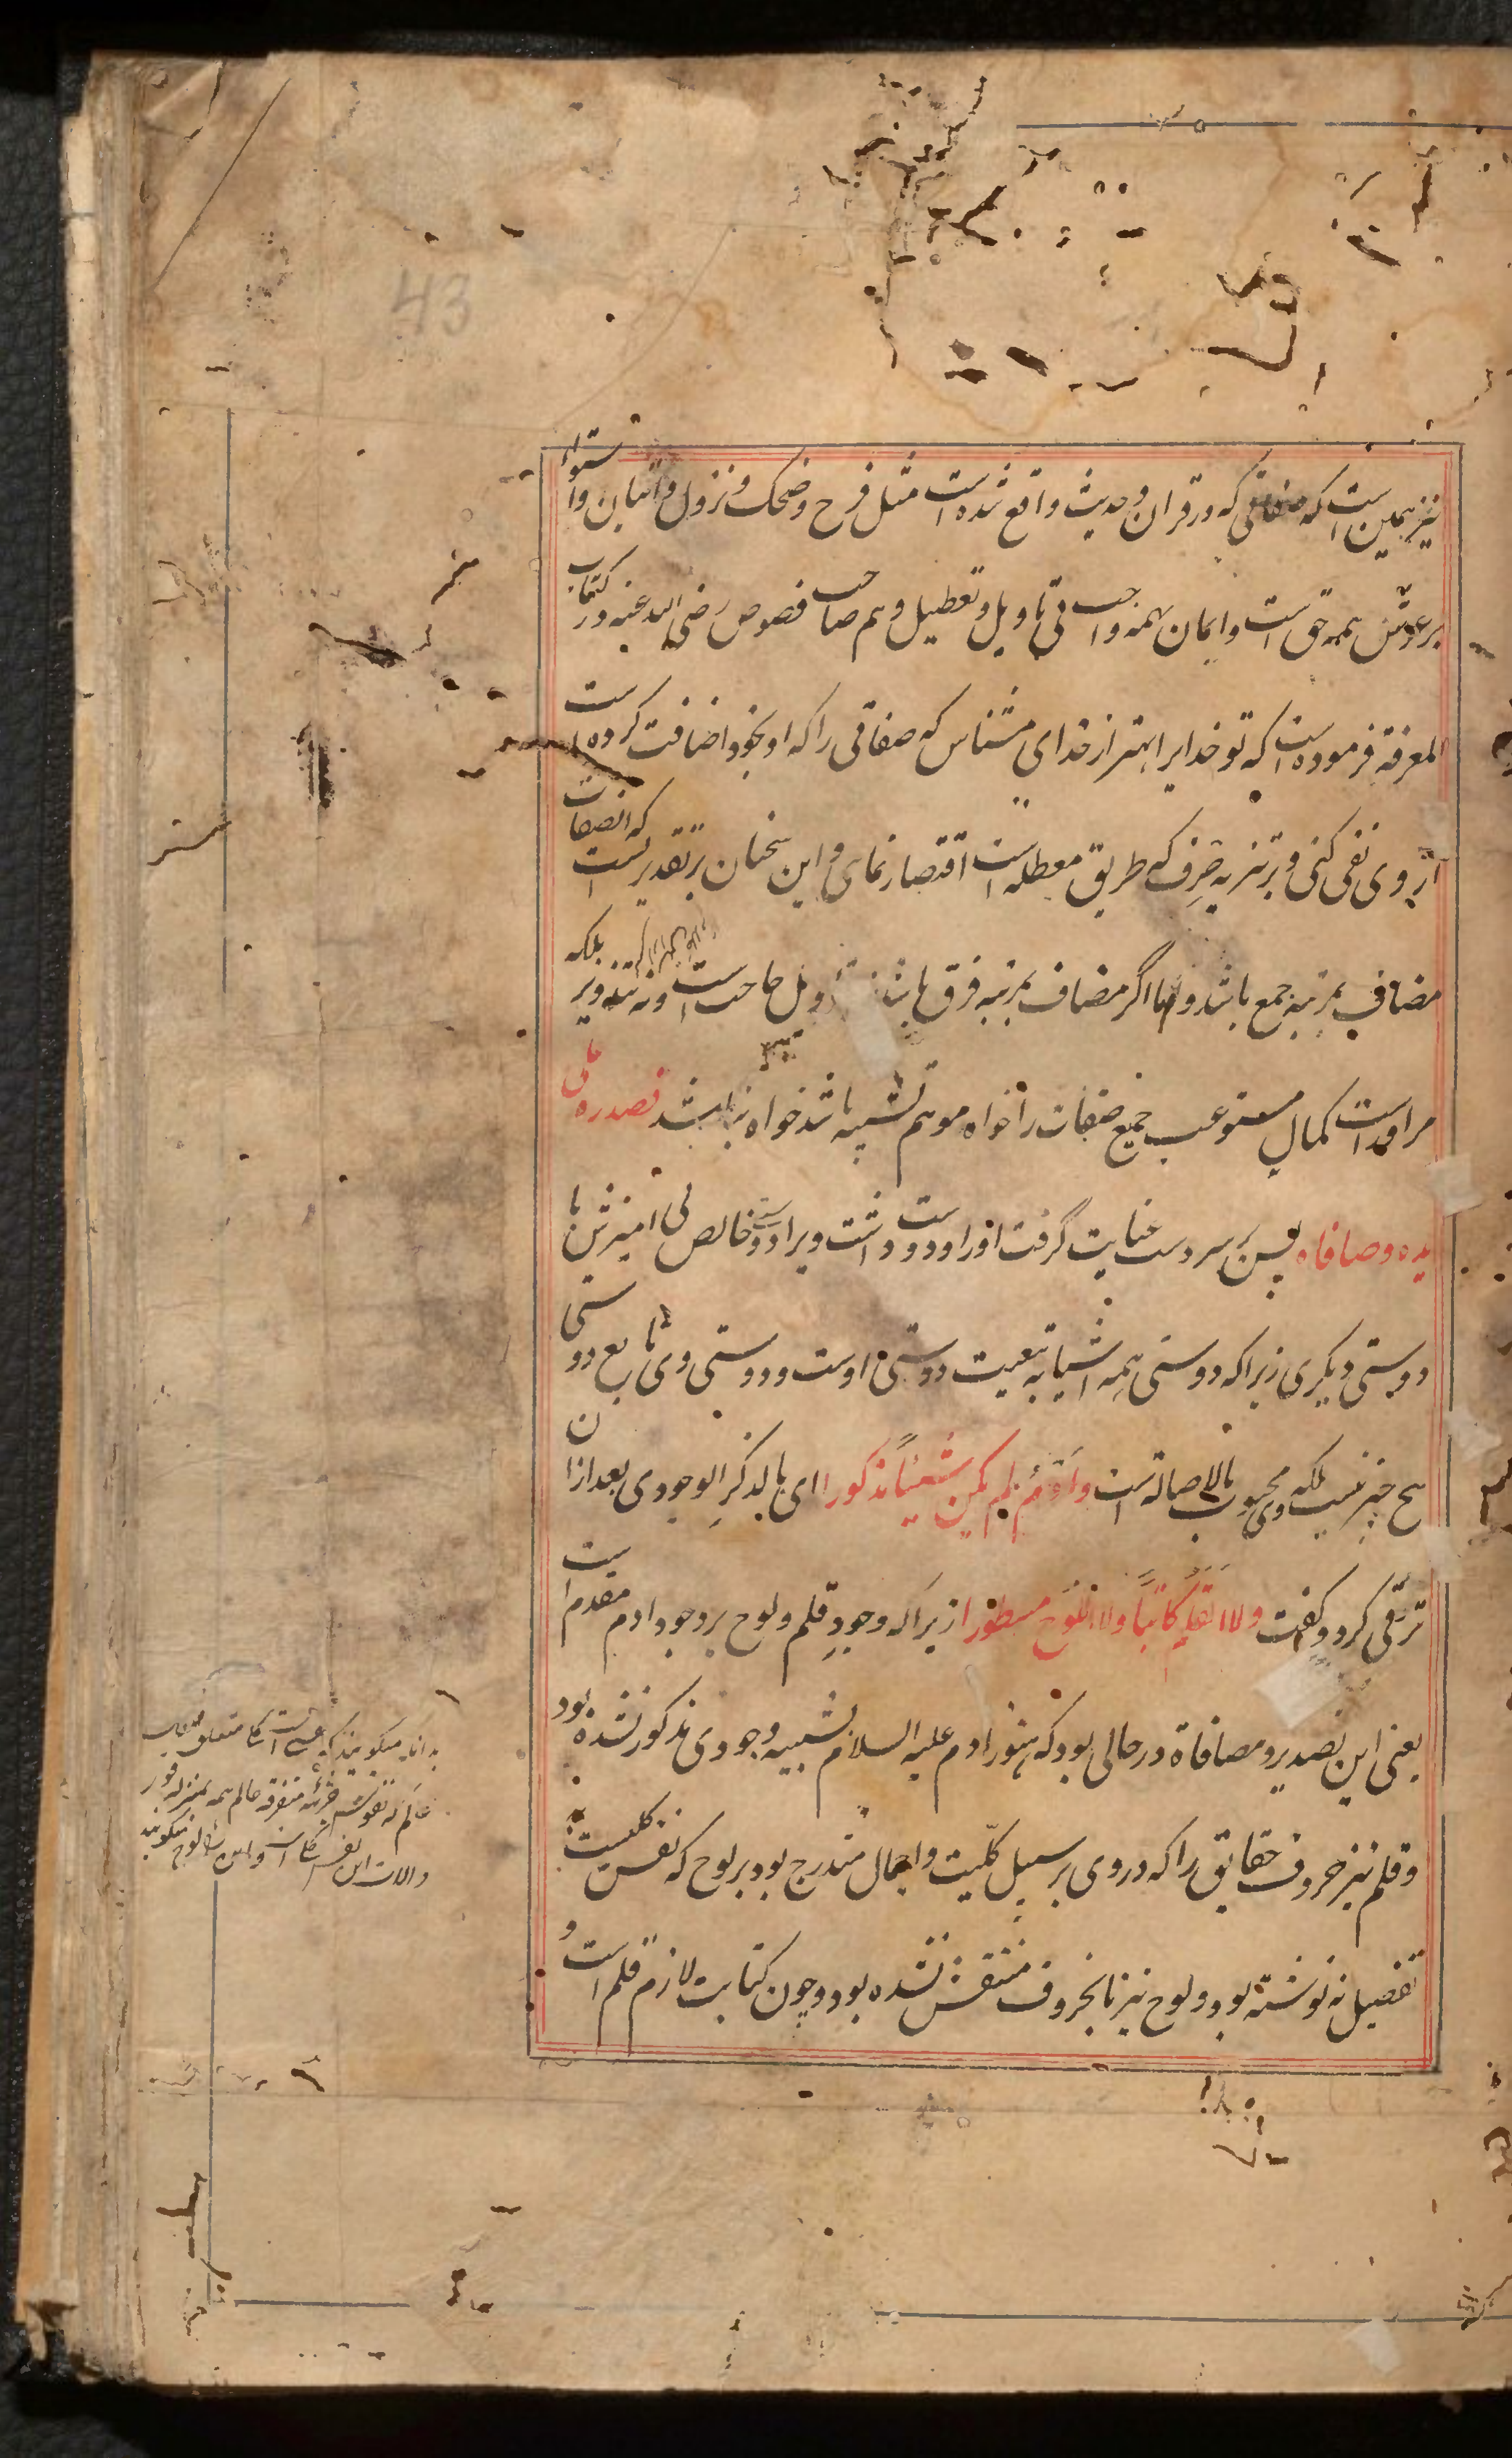 43
نیز همین است که صفاتی که در قران و حدیث واقع شده است مثل فرح و ضحک و نزول و اتیان و استواء
بر عرش همه حق است و ایمان بهمه واجب بی تاویل و تعطیل و هم صاحب فصوص رضی الله عنه در کتاب
المعرفة فرموده است که تو خدایرا بهتر از خدای مشناس که صفاتی را که او بخود اضافت کرده است
از وی نفی کنی و بر تنزیه صرف که طریق معطله است اقتصار نمای و این سخنان بر تقدیریست که انصفات
مضاف بمرتبه جمع باشد و اما اگر مضاف بمرتبه فرق باشد نه تاویل حاجت است و نه تنزیه بلکه
مر او راست کمال مستوعب جمیع صفات را خواه موهم تشبیه باشد خواه نباشد فصدره علی
یده و صافاه پس بر سر دست عنایت گرفت او را و دوست داشت ویرا دوستی خالص بی امیزش با
دوستی دیگری زیرا که دوستی همه اشیا به تبعیت دوستی اوست و دوستی وی تابع دوستی
هیچ چیز نیست بلکه وی محبوب بالاصالة است وادم لم یکن شیئا مذکورا ای بالذکر الوجودی بعد ازان
ترقی کرد و گفت ولا القلم کاتبا ولا اللوح مسطورا زیرا که وجود قلم و لوح بر وجود ادم مقدم است
یعنی این تصدیر و مصافاة در حالی بود که هنوز ادم علیه السلام بشیئیه وجودی مذکور نشده بود
و قلم نیز حروف حقایق را که در وی بر سبیل کلیت و اجمال مندرج بود بر لوح که نفس کلیست
تفصیل نه نوشته بود و لوح نیز بانحروف منتقش نشده بود و چون کتابت لازم قلم است و